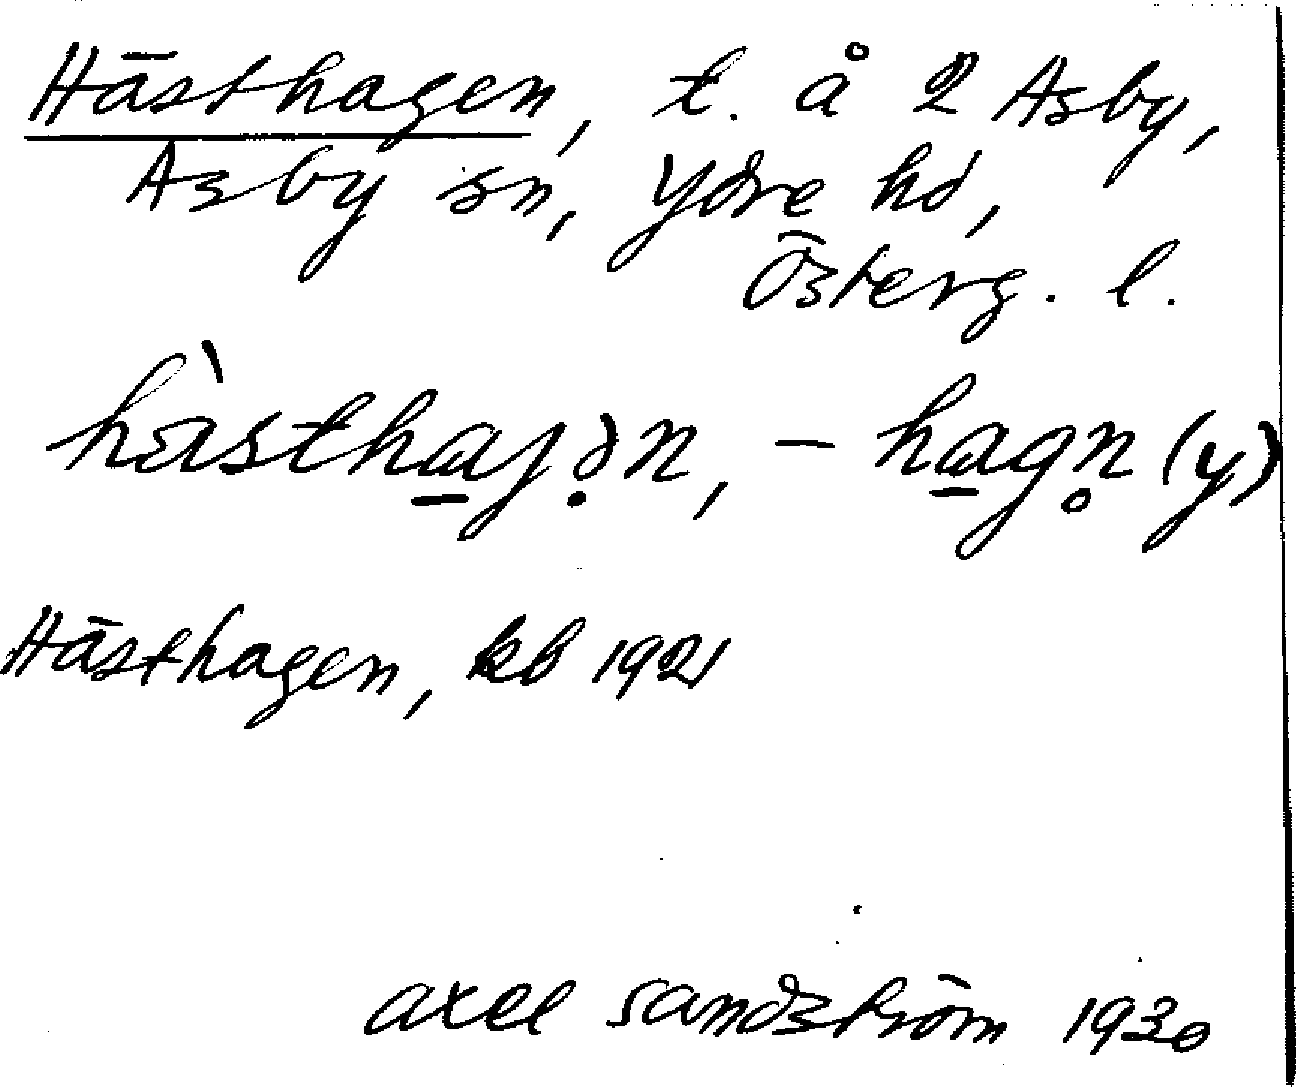 Hästhagen, t. å 2 Asby,
Asby sn, Ydre hd,
Österg. l.
hàsthaꞬən, – hagn̥ (y)
Hästhagen, kb 1921
axel sandström 1930